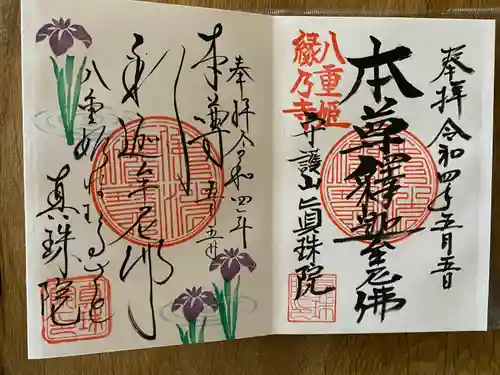 奉拝 令和四年五月五日
本尊釋迦牟尼佛
八重姫
縁乃寺
守護山眞珠院
奉拝令和四年
五月五日
本尊
迦牟尼佛
八重姫
真珠院